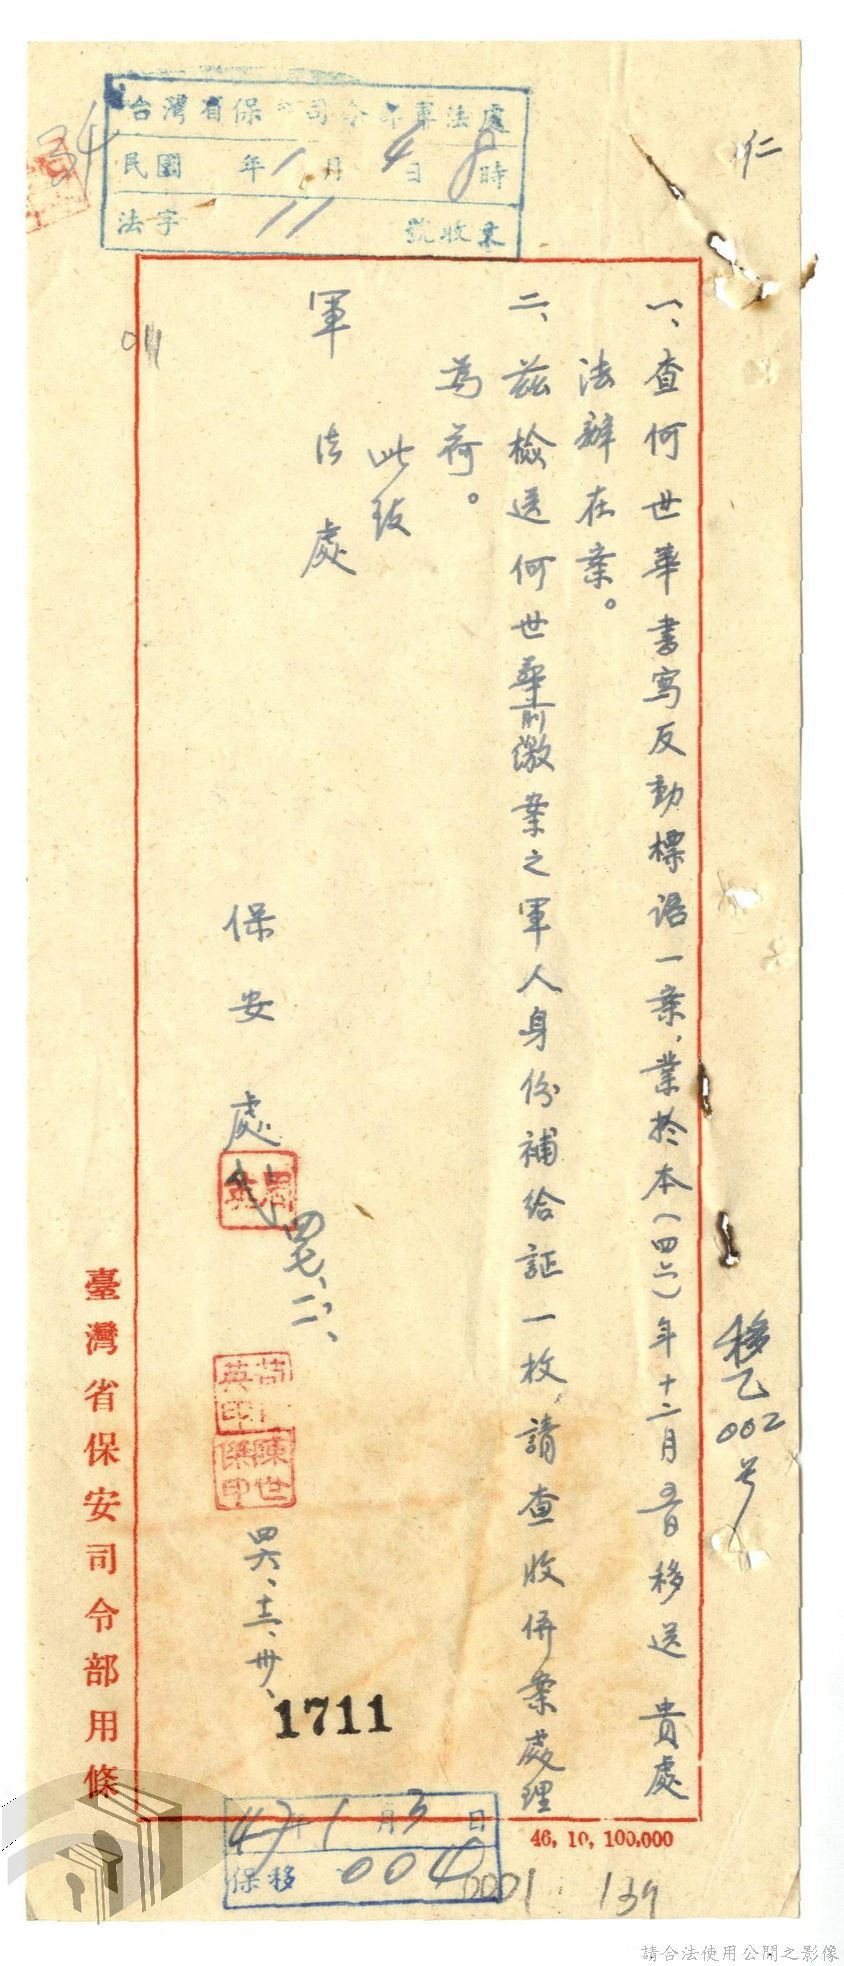 台灣省保 司令部軍法處
民國 年1月4日8時
法字 11 號收來
仁
一、查何世華書寫反動標語一案,業於本(四六)年十二月 日移送 貴處
法辦在案。
二、茲檢送何世華前繳案之軍人身份補給証一枚,請查收併案處理
為荷。
此致
軍法處
保安處
四七、二、
四六、十二、卅、
1711
移乙002号
臺灣省保安司令部用條
47年1月3日
保移 004
46, 10, 100,000
0001 139
請合法使用公開之影像